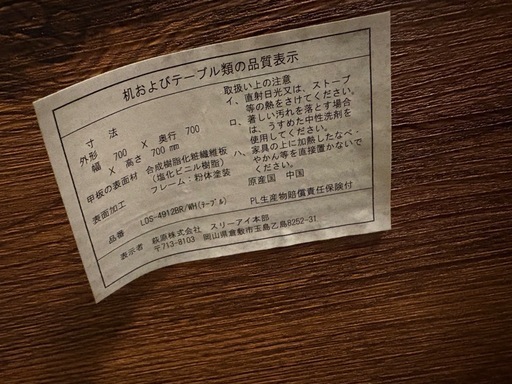 机およびテーブル類の品質表示
寸法
外形 700 × 奥行 700
幅 × 高さ 700 mm
甲板の表面材 合成樹脂化粧繊維板
(塩化ビニル樹脂)
表面加工 フレーム:粉体塗装
品番 LDS-4912BR/WH(テーブル)
表示者 萩原株式会社 スリーアイ本部
〒713-8103 岡山県倉敷市玉島乙島8252-31
取扱い上の注意
イ、直射日光又は、ストーブ
等の熱をさけてください。
ロ、著しい汚れを落とす場合
は、うすめた中性洗剤を
使用してください。
ハ、家具の上に加熱したなべ・
やかん等を直接置かないで
ください。
原産国 中国
PL生産物賠償責任保険付